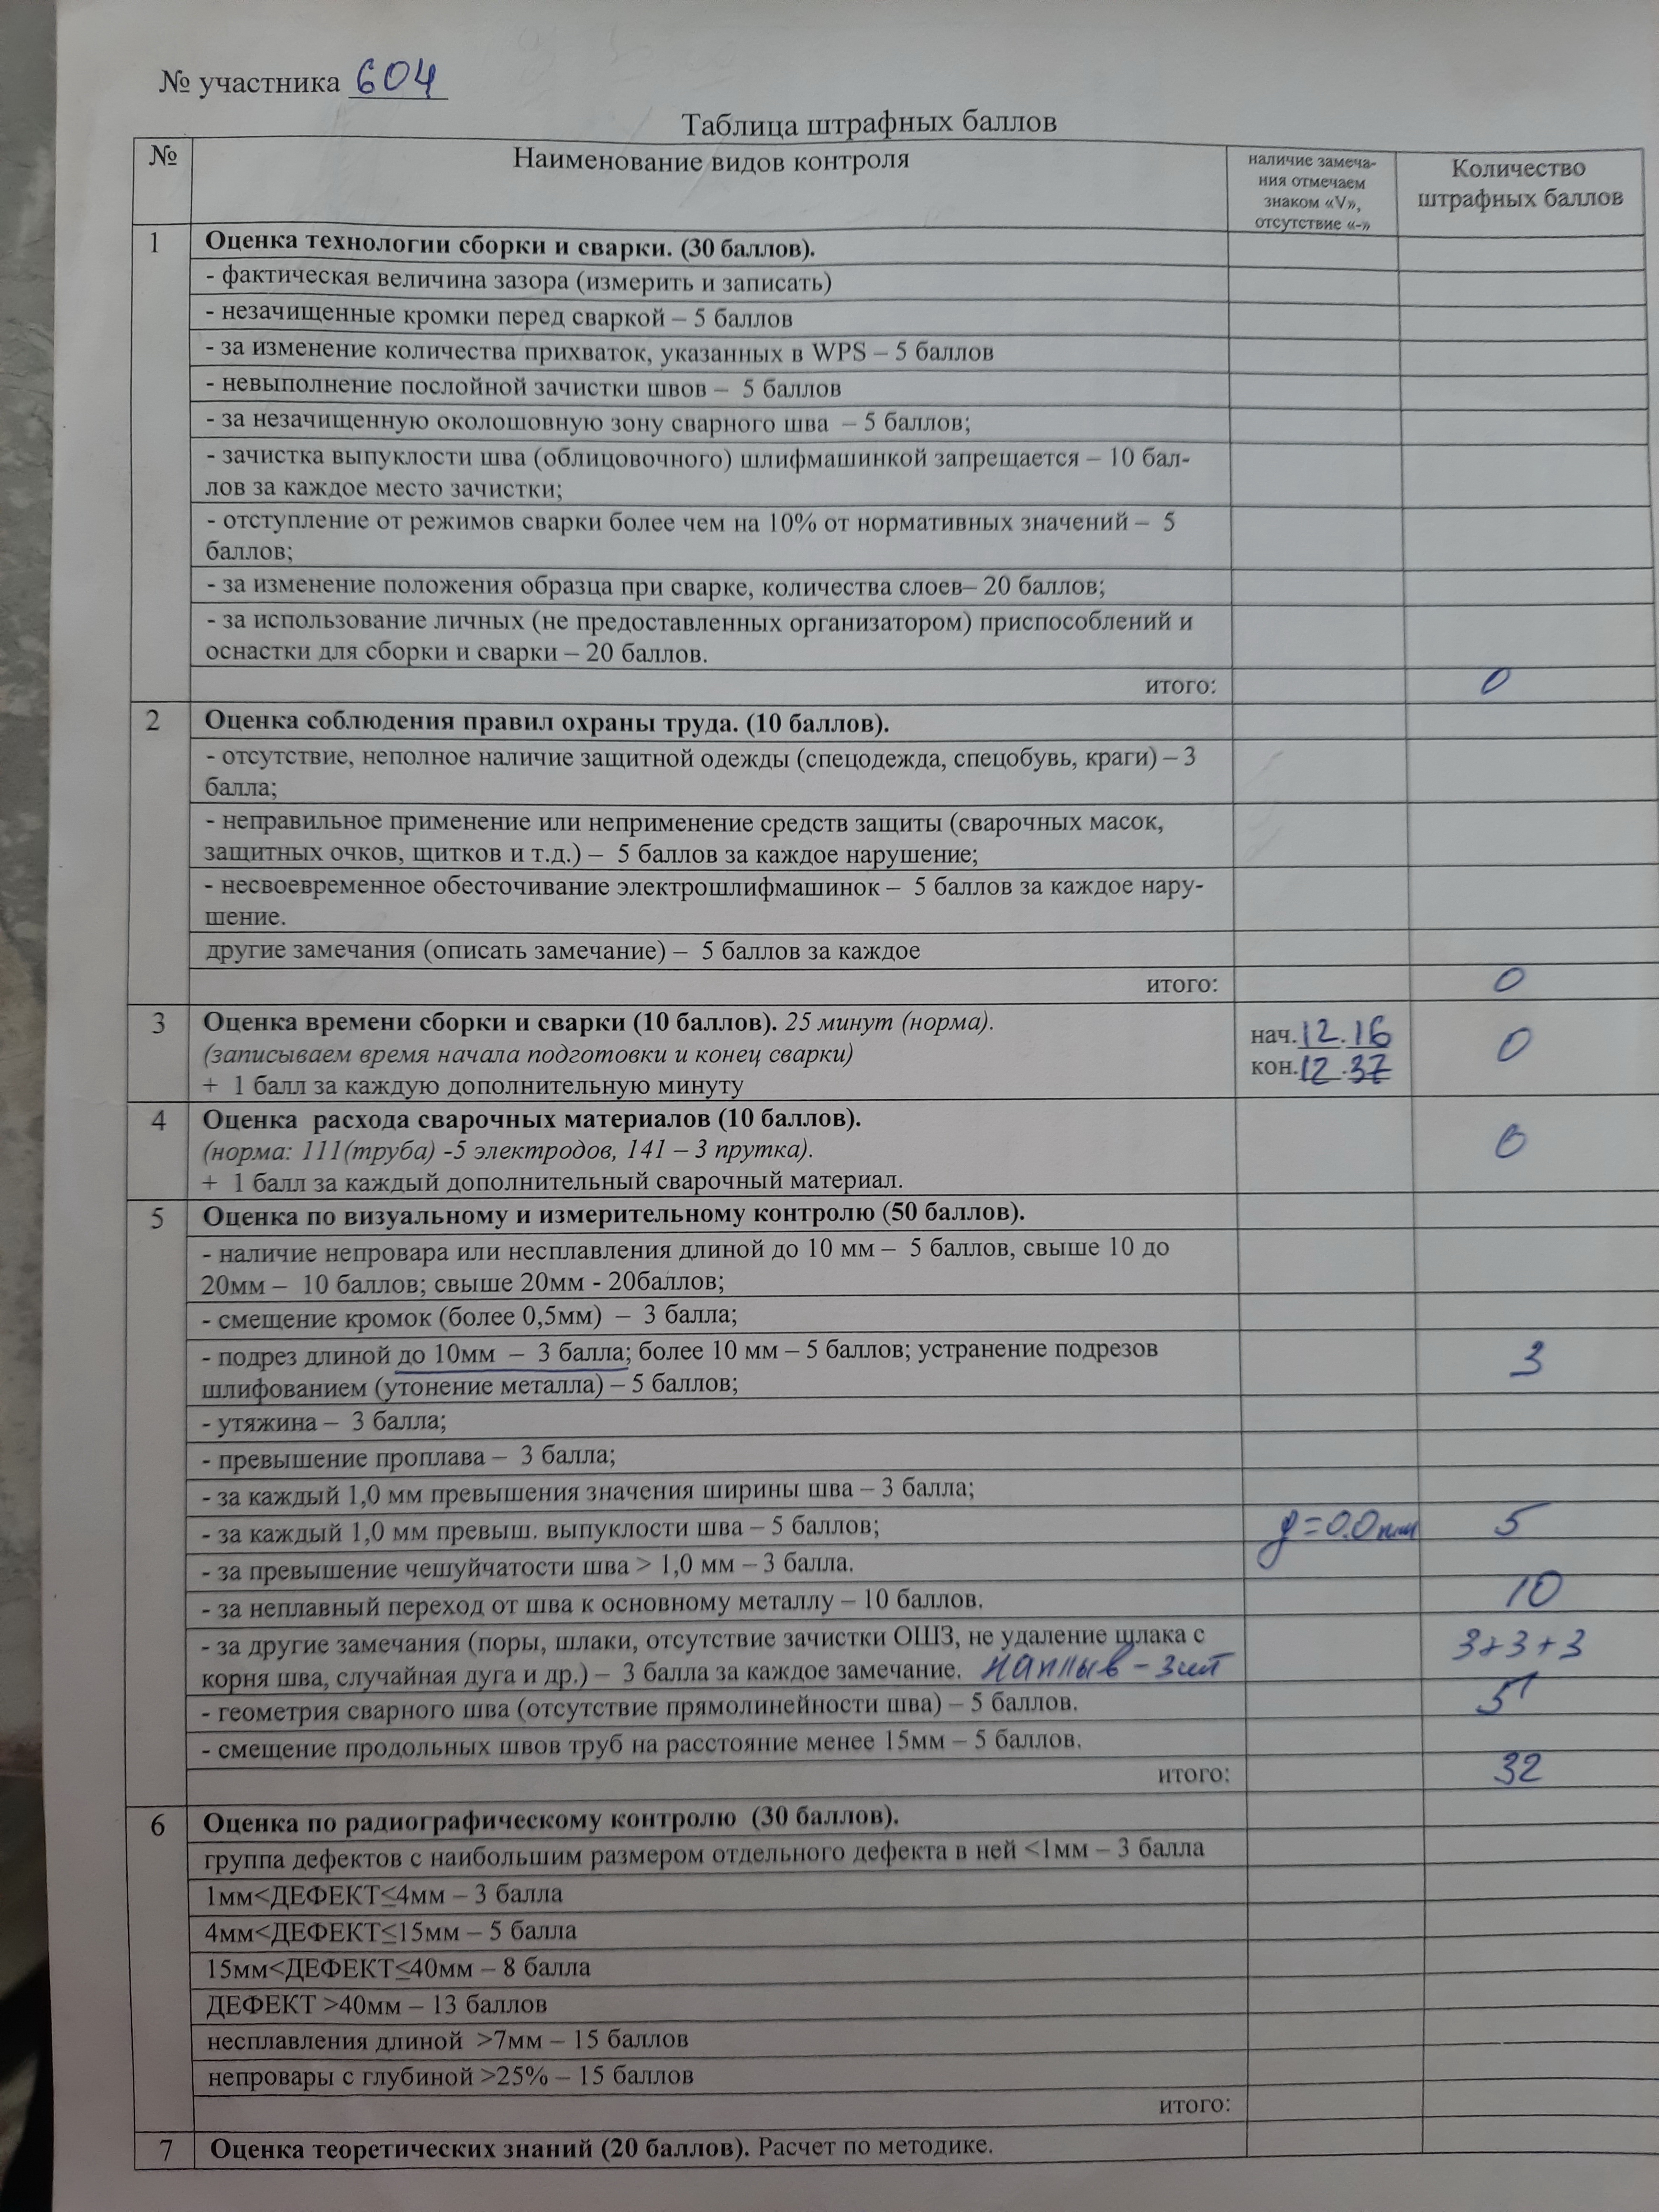 № участника 604
Таблица штрафных баллов
№
Наименование видов контроля
наличие замеча-
ния отмечаем
знаком «V»,
отсутствие «-»
Количество
штрафных баллов
1
Оценка технологии сборки и сварки. (30 баллов).
- фактическая величина зазора (измерить и записать)
- незачищенные кромки перед сваркой – 5 баллов
- за изменение количества прихваток, указанных в WPS – 5 баллов
- невыполнение послойной зачистки швов – 5 баллов
- за незачищенную околошовную зону сварного шва – 5 баллов;
- зачистка выпуклости шва (облицовочного) шлифмашинкой запрещается – 10 бал-
лов за каждое место зачистки;
- отступление от режимов сварки более чем на 10% от нормативных значений – 5
баллов;
- за изменение положения образца при сварке, количества слоев– 20 баллов;
- за использование личных (не предоставленных организатором) приспособлений и
оснастки для сборки и сварки – 20 баллов.
итого: 0
2
Оценка соблюдения правил охраны труда. (10 баллов).
- отсутствие, неполное наличие защитной одежды (спецодежда, спецобувь, краги) – 3
балла;
- неправильное применение или неприменение средств защиты (сварочных масок,
защитных очков, щитков и т.д.) – 5 баллов за каждое нарушение;
- несвоевременное обесточивание электрошлифмашинок – 5 баллов за каждое нару-
шение.
другие замечания (описать замечание) – 5 баллов за каждое
итого: 0
3
Оценка времени сборки и сварки (10 баллов). 25 минут (норма).
(записываем время начала подготовки и конец сварки)
+ 1 балл за каждую дополнительную минуту
нач. 12.16
кон. 12.37
0
4
Оценка расхода сварочных материалов (10 баллов).
(норма: 111(труба) -5 электродов, 141 – 3 прутка).
+ 1 балл за каждый дополнительный сварочный материал.
0
5
Оценка по визуальному и измерительному контролю (50 баллов).
- наличие непровара или несплавления длиной до 10 мм – 5 баллов, свыше 10 до
20мм – 10 баллов; свыше 20мм - 20баллов;
- смещение кромок (более 0,5мм) – 3 балла;
- подрез длиной до 10мм – 3 балла; более 10 мм – 5 баллов; устранение подрезов
шлифованием (утонение металла) – 5 баллов;
3
- утяжина – 3 балла;
- превышение проплава – 3 балла;
- за каждый 1,0 мм превышения значения ширины шва – 3 балла;
- за каждый 1,0 мм превыш. выпуклости шва – 5 баллов; g=0.0мм 5
- за превышение чешуйчатости шва > 1,0 мм – 3 балла.
- за неплавный переход от шва к основному металлу – 10 баллов. 10
- за другие замечания (поры, шлаки, отсутствие зачистки ОШЗ, не удаление шлака с
корня шва, случайная дуга и др.) – 3 балла за каждое замечание. наплыв – 3шт
3+3+3
- геометрия сварного шва (отсутствие прямолинейности шва) – 5 баллов. 5
- смещение продольных швов труб на расстояние менее 15мм – 5 баллов.
итого: 32
6
Оценка по радиографическому контролю (30 баллов).
группа дефектов с наибольшим размером отдельного дефекта в ней <1мм – 3 балла
1мм<ДЕФЕКТ≤4мм – 3 балла
4мм<ДЕФЕКТ≤15мм – 5 балла
15мм<ДЕФЕКТ≤40мм – 8 балла
ДЕФЕКТ >40мм – 13 баллов
несплавления длиной >7мм – 15 баллов
непровары с глубиной >25% – 15 баллов
итого:
7
Оценка теоретических знаний (20 баллов). Расчет по методике.